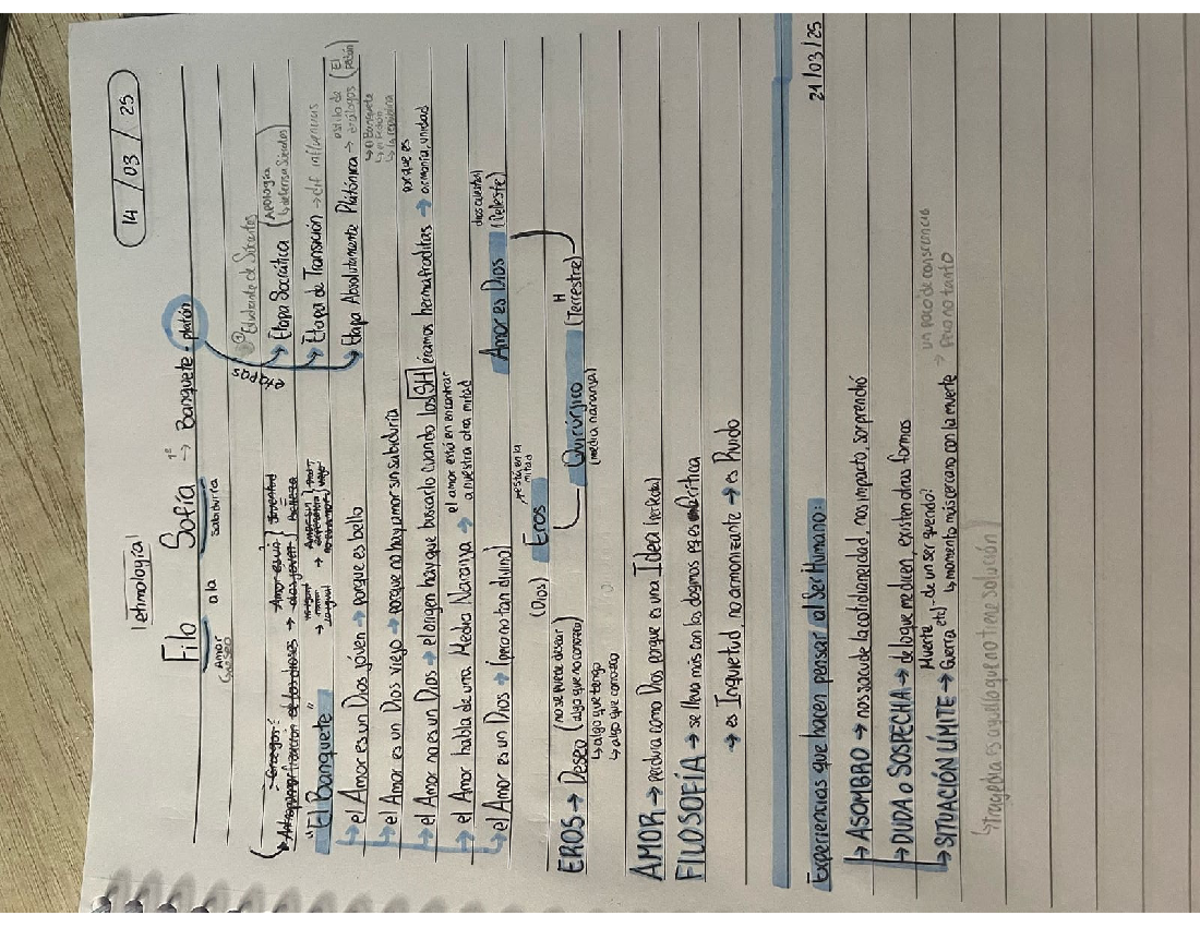 14 / 03 / 25
etimología
Filo Sofía → 1º Banquete - platón
Amor (deseo) a la sabiduría
etapas
Estudiante de Sócrates
→ Etapa Socrática (Apología ↳ defensa Sócrates)
→ Etapa de Transición → dif influencias
→ Etapa Absolutamente Platónica → estilo de diálogos (El Platón)
↳ El Banquete
↳ la república
Griegos:
de los dioses → Amor es un dios joven } Juventud = belleza
"El Banquete"
→ el Amor es un Dios jóven → porque es bello
→ el Amor es un Dios viejo → porque no hay amor sin sabiduría
→ el Amor no es un Dios → el origen hay que buscarlo cuando los SH éramos hermafroditas → porque es armonía, unidad
→ el Amor habla de una Media Naranja → el amor está en encontrar a nuestra otra mitad
→ el Amor es un Dios → (pero no tan divino)
(Dios) Eros → está en la mitad
Amor es Dios (Celeste)
dios celestial
Quirúrjico (Terrestre)
H
(media naranja)
EROS → Deseo (no se puede desear algo que no conozco)
↳ algo que tengo
↳ algo que conozco
AMOR → perdura como Dios porque es una Idea (perfecta)
FILOSOFÍA → se lleva más con los dogmas es Crítica
→ es Inquietud, no armonizante → es Ruido
21/03/25
Experiencias que hacen pensar al Ser Humano:
→ ASOMBRO → nos sacude la cotidianeidad, nos impacto, sorprendió
→ DUDA o SOSPECHA → de lo que me dicen, existen otras formas
→ SITUACIÓN LÍMITE → Muerte Guerra etc) - de un ser querido?
↳ momento más cercano con la muerte → un poco de consciencia pero no tanto
↳ tragedia es aquello que no tiene solución)